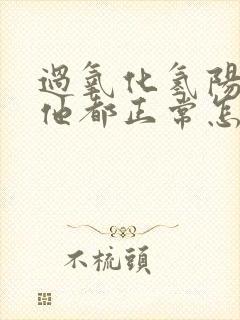 過氧化氢陽
他都正常怎
不梳頭